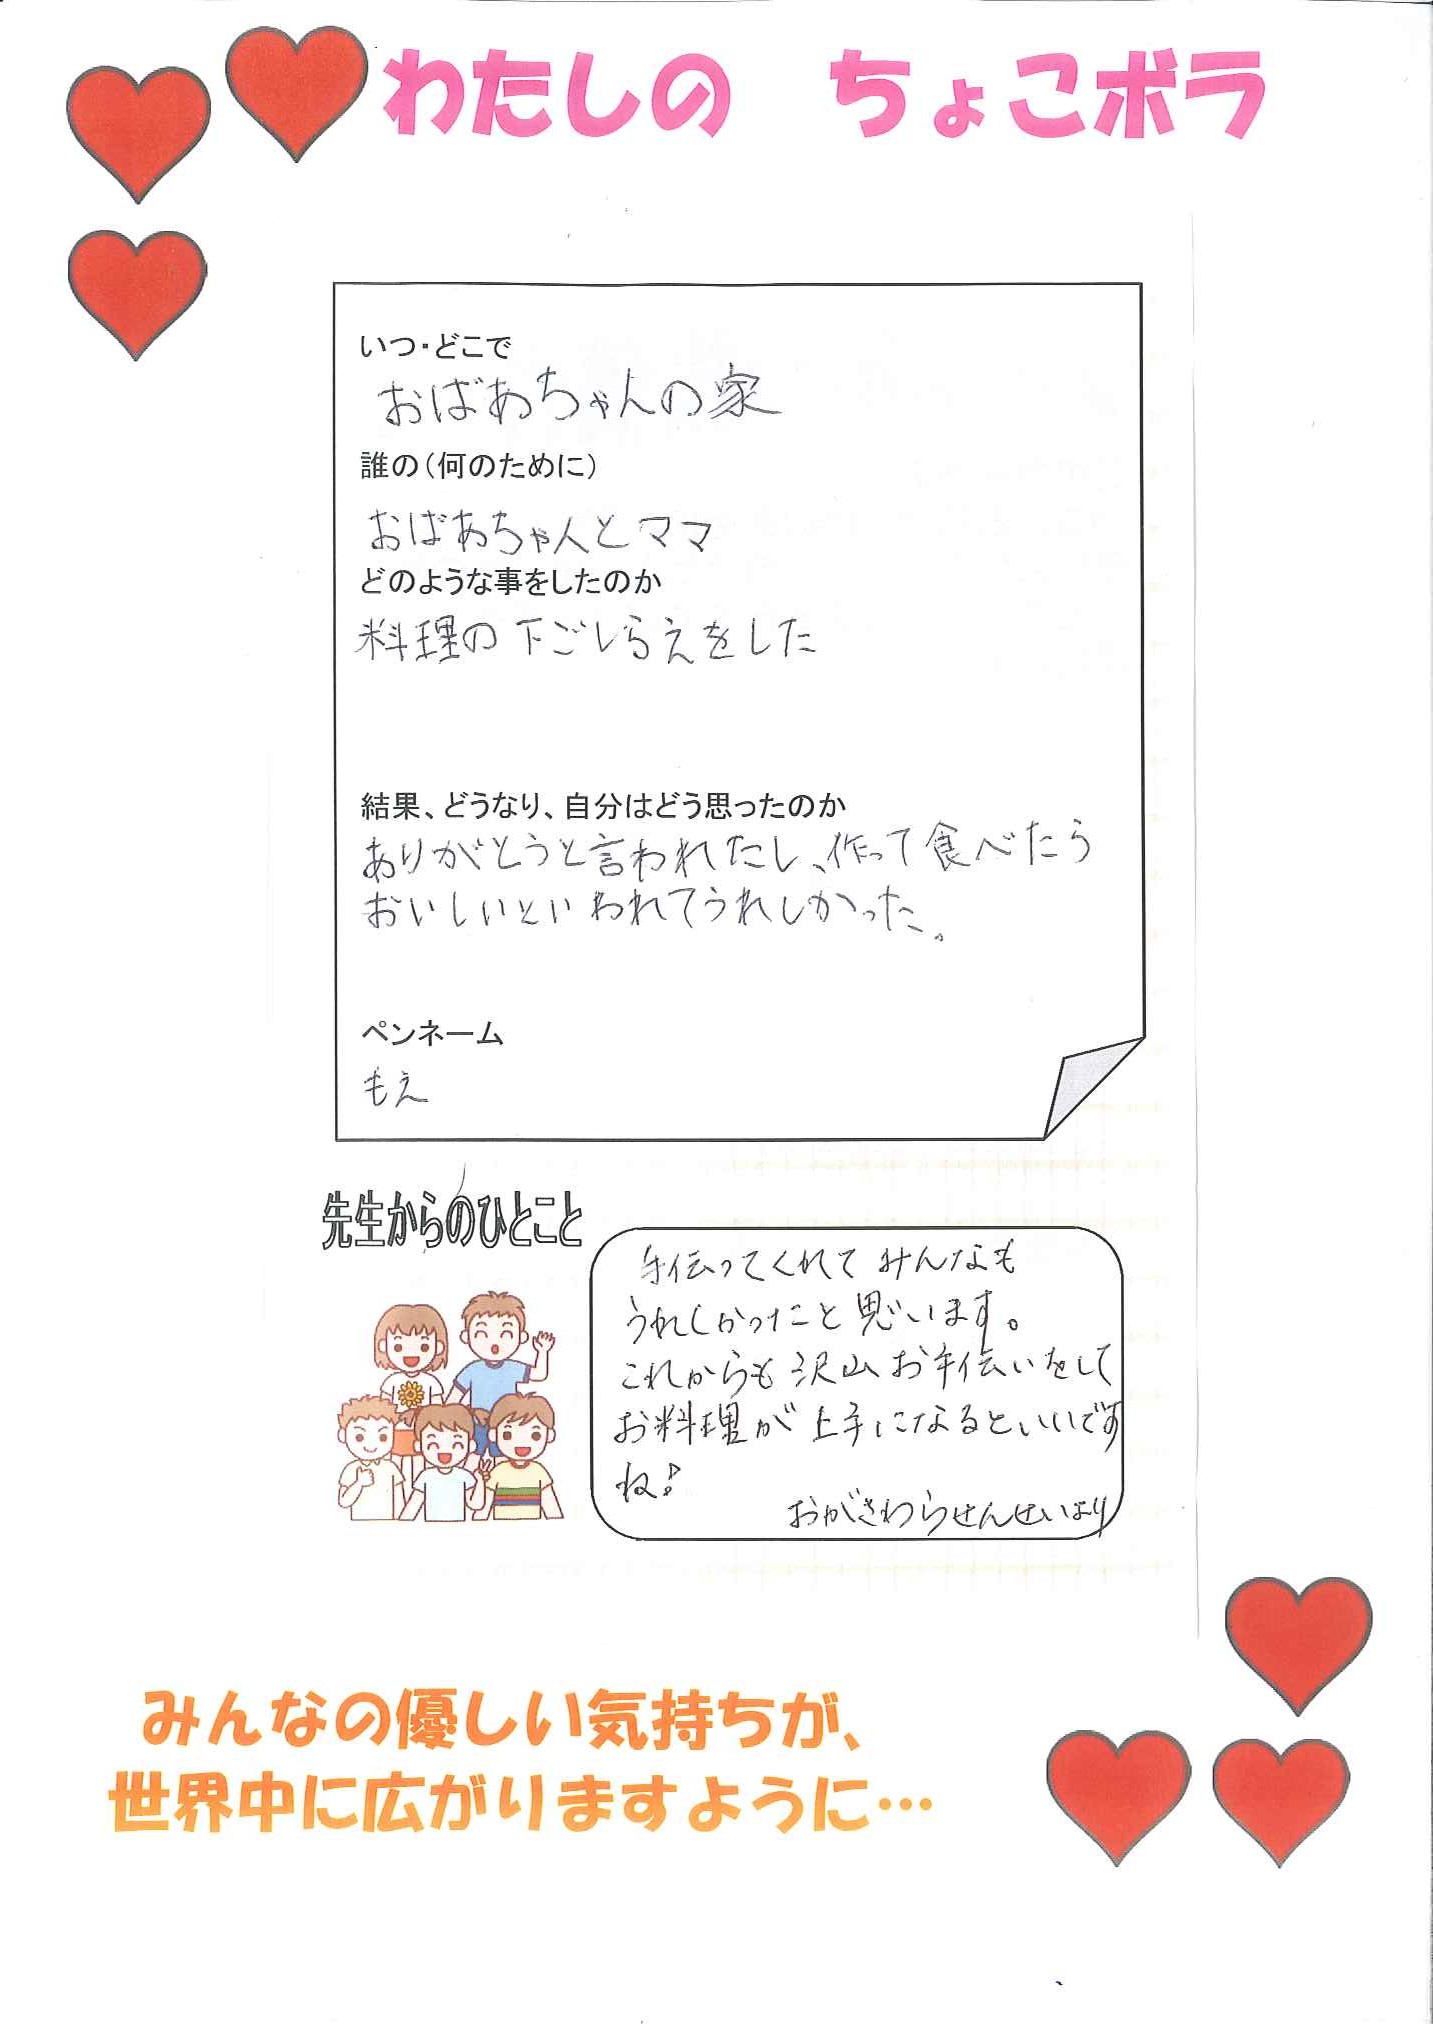 わたしの　ちょこボラ
いつ・どこで
おばあちゃんの家
誰の（何のために）
おばあちゃんとママ
どのような事をしたのか
料理の下ごしらえをした
結果、どうなり、自分はどう思ったのか
ありがとうと言われたし、作って食べたら
おいしいといわれてうれしかった。
ペンネーム
もえ
先生からのひとこと
手伝ってくれてみんなも
うれしかったこと思います。
これからも沢山お手伝いをして
お料理が上手になるといいです
ね♪
おがさわらせんせいより
みんなの優しい気持ちが、
世界中に広がりますように…